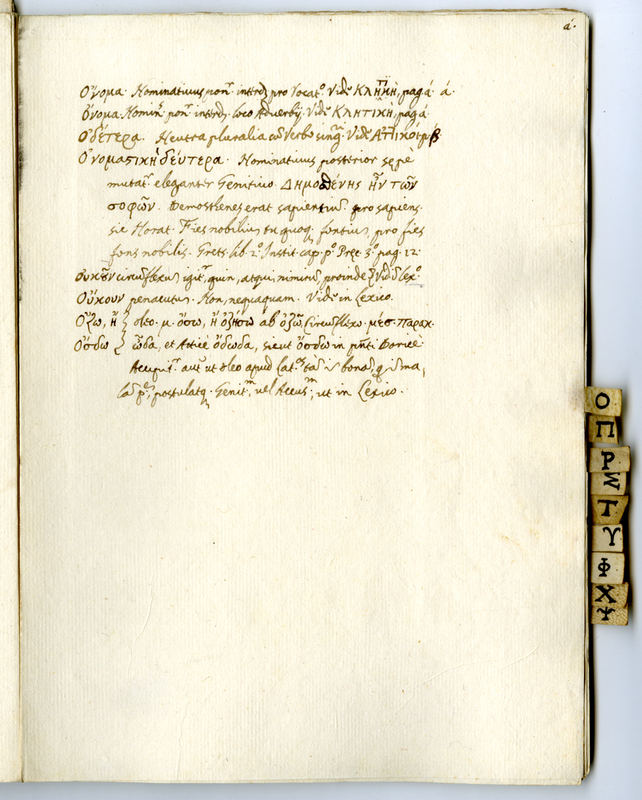 á.
Ὄνομα. Nominativus pon.r interd. pro Vocat.o Vide ΚΛΗΤΙΚῊ, pag. á. á.
Ὄνομα. Nomin. pon.r interd. loco Adverbij. Vide ΚΛΗΤΙΚΗ, pag á
Οὐδέτερα. Neutra pluralia cum Verbo sing. Vide ΑΤΤΙΚΟΙ, β
Ὀνομαστικὴ δεύτερα. Nominativus posterior sepe
mutat.r eleganter Genitivo. Δημοσθένης ἦν τῶν
σοφῶν. Demosthenes erat sapientium. pro sapiens.
sic Horat. Fies nobilium tu quoq. fontium, pro fies
fons nobilis. Grets. lib. 2.o Instit. cap. p.o Pręc. 3.o pag. 12.
Οὐκοῦν circumflexum igit.r, quin, atqui, nimirum, proinde Vid. Lex.o
Οὔκουν penacutum. Non, nequaquam. Vide in Lexico.
Ὄζω, ἢ oleo. μ. ὄσω, ἢ ὀζήσω ab ὀζῶ, Circumflexo. μέσ. παρακ.
Ὄσδω ὦδα, et Atticè ὄδωδα, sicut ὄσδω in pnti Doricè
Accipit.r aut. ut oleo apud Lat.
postulatq. Genit.m vel Accus.m, ut in Lexico.
Ο
Π
Ρ
Σ
Τ
Υ
Φ
Χ
Ψ